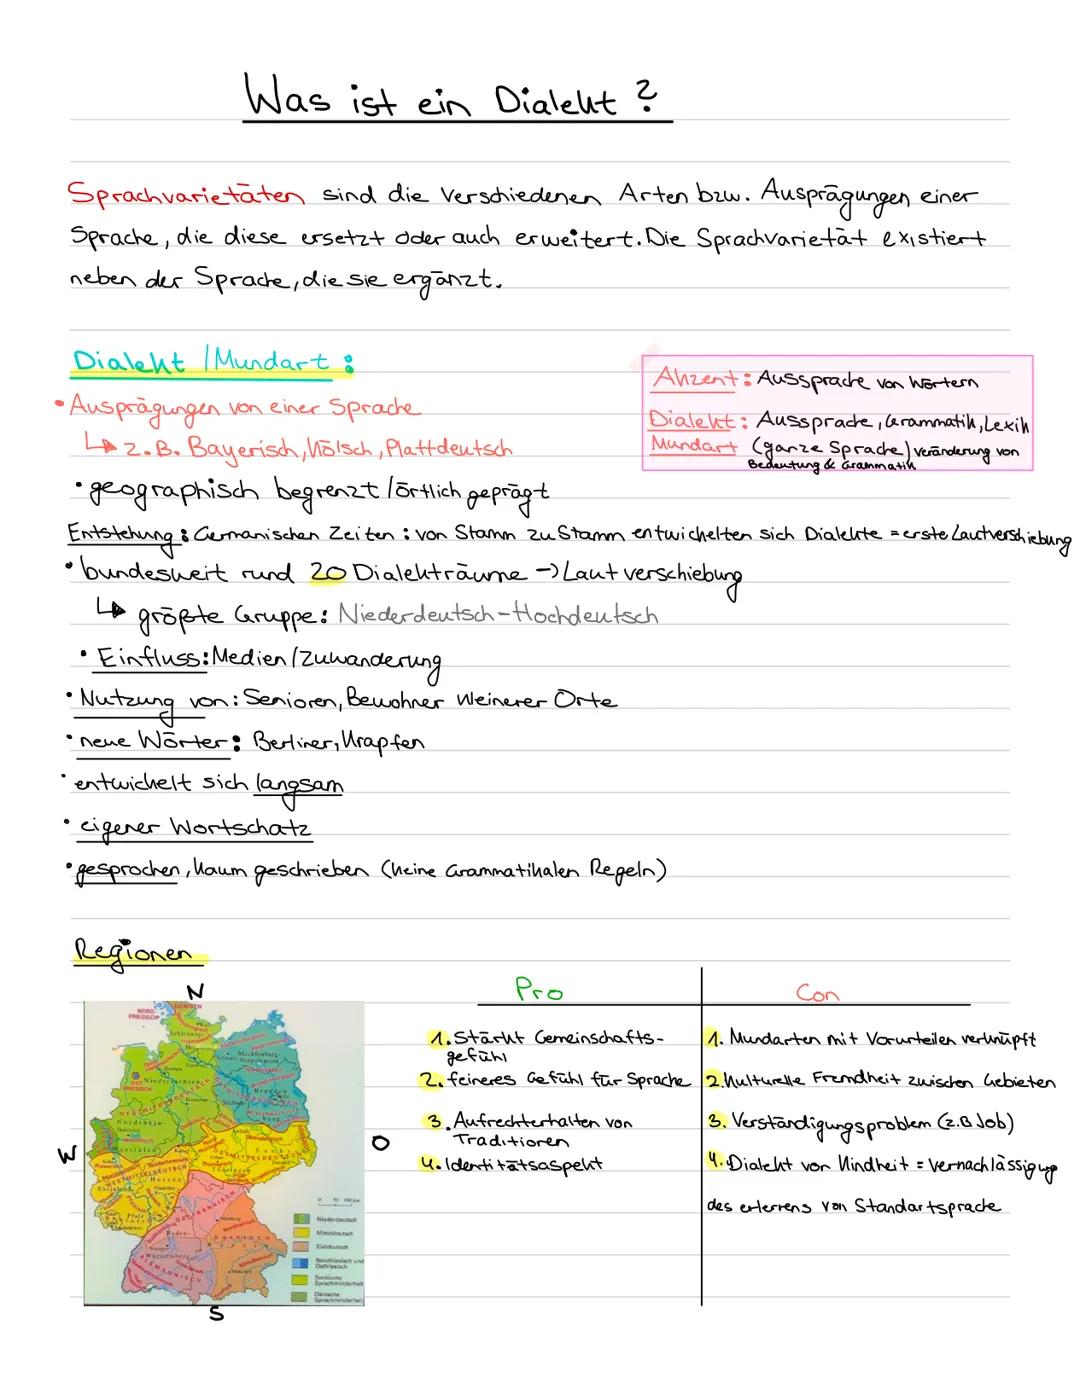 Was ist ein Dialekt?
Sprachvarietäten sind die verschiedenen Arten bzw. Ausprägungen einer
Sprache, die diese ersetzt oder auch erweitert. Die Sprachvarietät existiert
neben der Sprache, die sie ergänzt.
Dialekt / Mundart:
• Ausprägungen von einer Sprache
↳ z.B. Bayerisch, Kölsch, Plattdeutsch
Akzent: Aussprache von Wörtern
Dialekt: Aussprache, Grammatik, Lexik
Mundart (ganze Sprache) veränderung von
Bedeutung & Grammatik
• geographisch begrenzt / örtlich geprägt
Entstehung: Germanischen Zeiten: von Stamm zu Stamm entwickelten sich Dialekte = erste Lautverschiebung
• bundesweit rund 20 Dialekträume -> Lautverschiebung
↳ größte Gruppe: Niederdeutsch-Hochdeutsch
• Einfluss: Medien / Zuwanderung
• Nutzung von: Senioren, Bewohner kleinerer Orte
• neue Wörter: Berliner, Krapfen
• entwickelt sich langsam
• eigener Wortschatz
• gesprochen, kaum geschrieben (keine Grammatikalen Regeln)
Regionen
N
W
O
S
NORD-
FRIESISCH
DÄNISCH
Schleswig-
Mecklenburg-
Niedersachsen
Nordrhein-
Westfalen
Hessen
Thüringen
Pfalz
Baden-
Württemberg
BAIRISCH
ALEMANNISCH
Niederdeutsch
Mitteldeutsch
Süddeutsch
Nordfriesisch und
Ostfriesisch
Sorbische
Sprachminderheit
Dänische
Sprachminderheit
Pro
1. Stärkt Gemeinschafts-
gefühl
2. feineres Gefühl für Sprache
3. Aufrechterhalten von
Traditionen
4. Identitätsaspekt
Con
1. Mundarten mit Vorurteilen verknüpft
2. Kulturelle Fremdheit zwischen Gebieten
3. Verständigungsproblem (z.B Job)
4. Dialekt von Kindheit = Vernachlässigung
des erlernens von Standartsprache